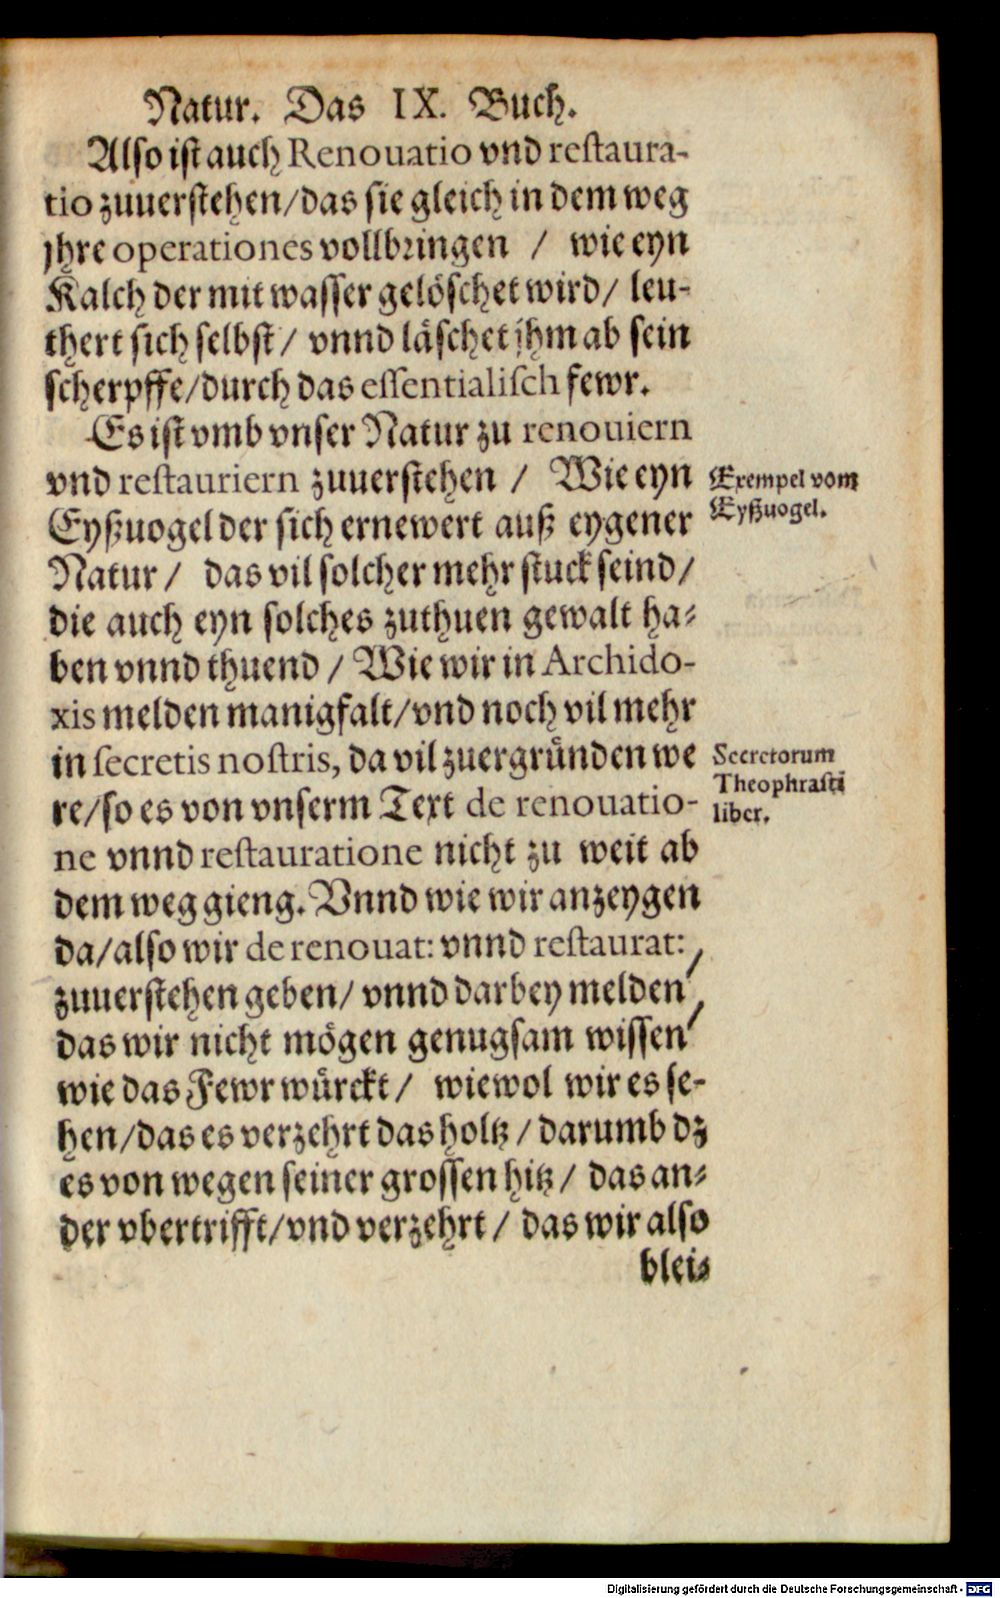 Natur. Das IX. Buch.
Also ist auch Renouatio vnd restaura-
tio zuuerstehen/das sie gleich in dem weg
jhre operationes vollbringen / wie eyn
Kalch der mit wasser gelöschet wird/ leu-
thert sich selbst/ vnnd läschet jhm ab sein
scherpffe/durch das essentialisch fewr.
Es ist vmb vnser Natur zu renouiern
vnd restauriern zuuerstehen / Wie eyn
Exempel vom
Eyßuogel der sich ernewert auß eygener
Eyßuogel.
Natur/ das vil solcher mehr stuck seind/
die auch eyn solches zuthuen gewalt ha-
ben vnnd thuend / Wie wir in Archido-
xis melden manigfalt/vnd noch vil mehr
in secretis nostris, da vil zuergründen we
Secretorum
Theophrasti
re/so es von vnserm Text de renouatio-
liber.
ne vnnd restauratione nicht zu weit ab
dem weg gieng. Vnnd wie wir anzeygen
da/also wir de renouat: vnnd restaurat:/
zuuerstehen geben/ vnnd darbey melden/
das wir nicht mögen genugsam wissen
wie das Fewr würckt/ wiewol wir es se-
hen/das es verzehrt das holtz/darumb dz
es von wegen seiner grossen hitz/ das an-
der vbertrifft/vnd verzehrt/ das wir also
blei-
Digitalisierung gefördert durch die Deutsche Forschungsgemeinschaft - DFG